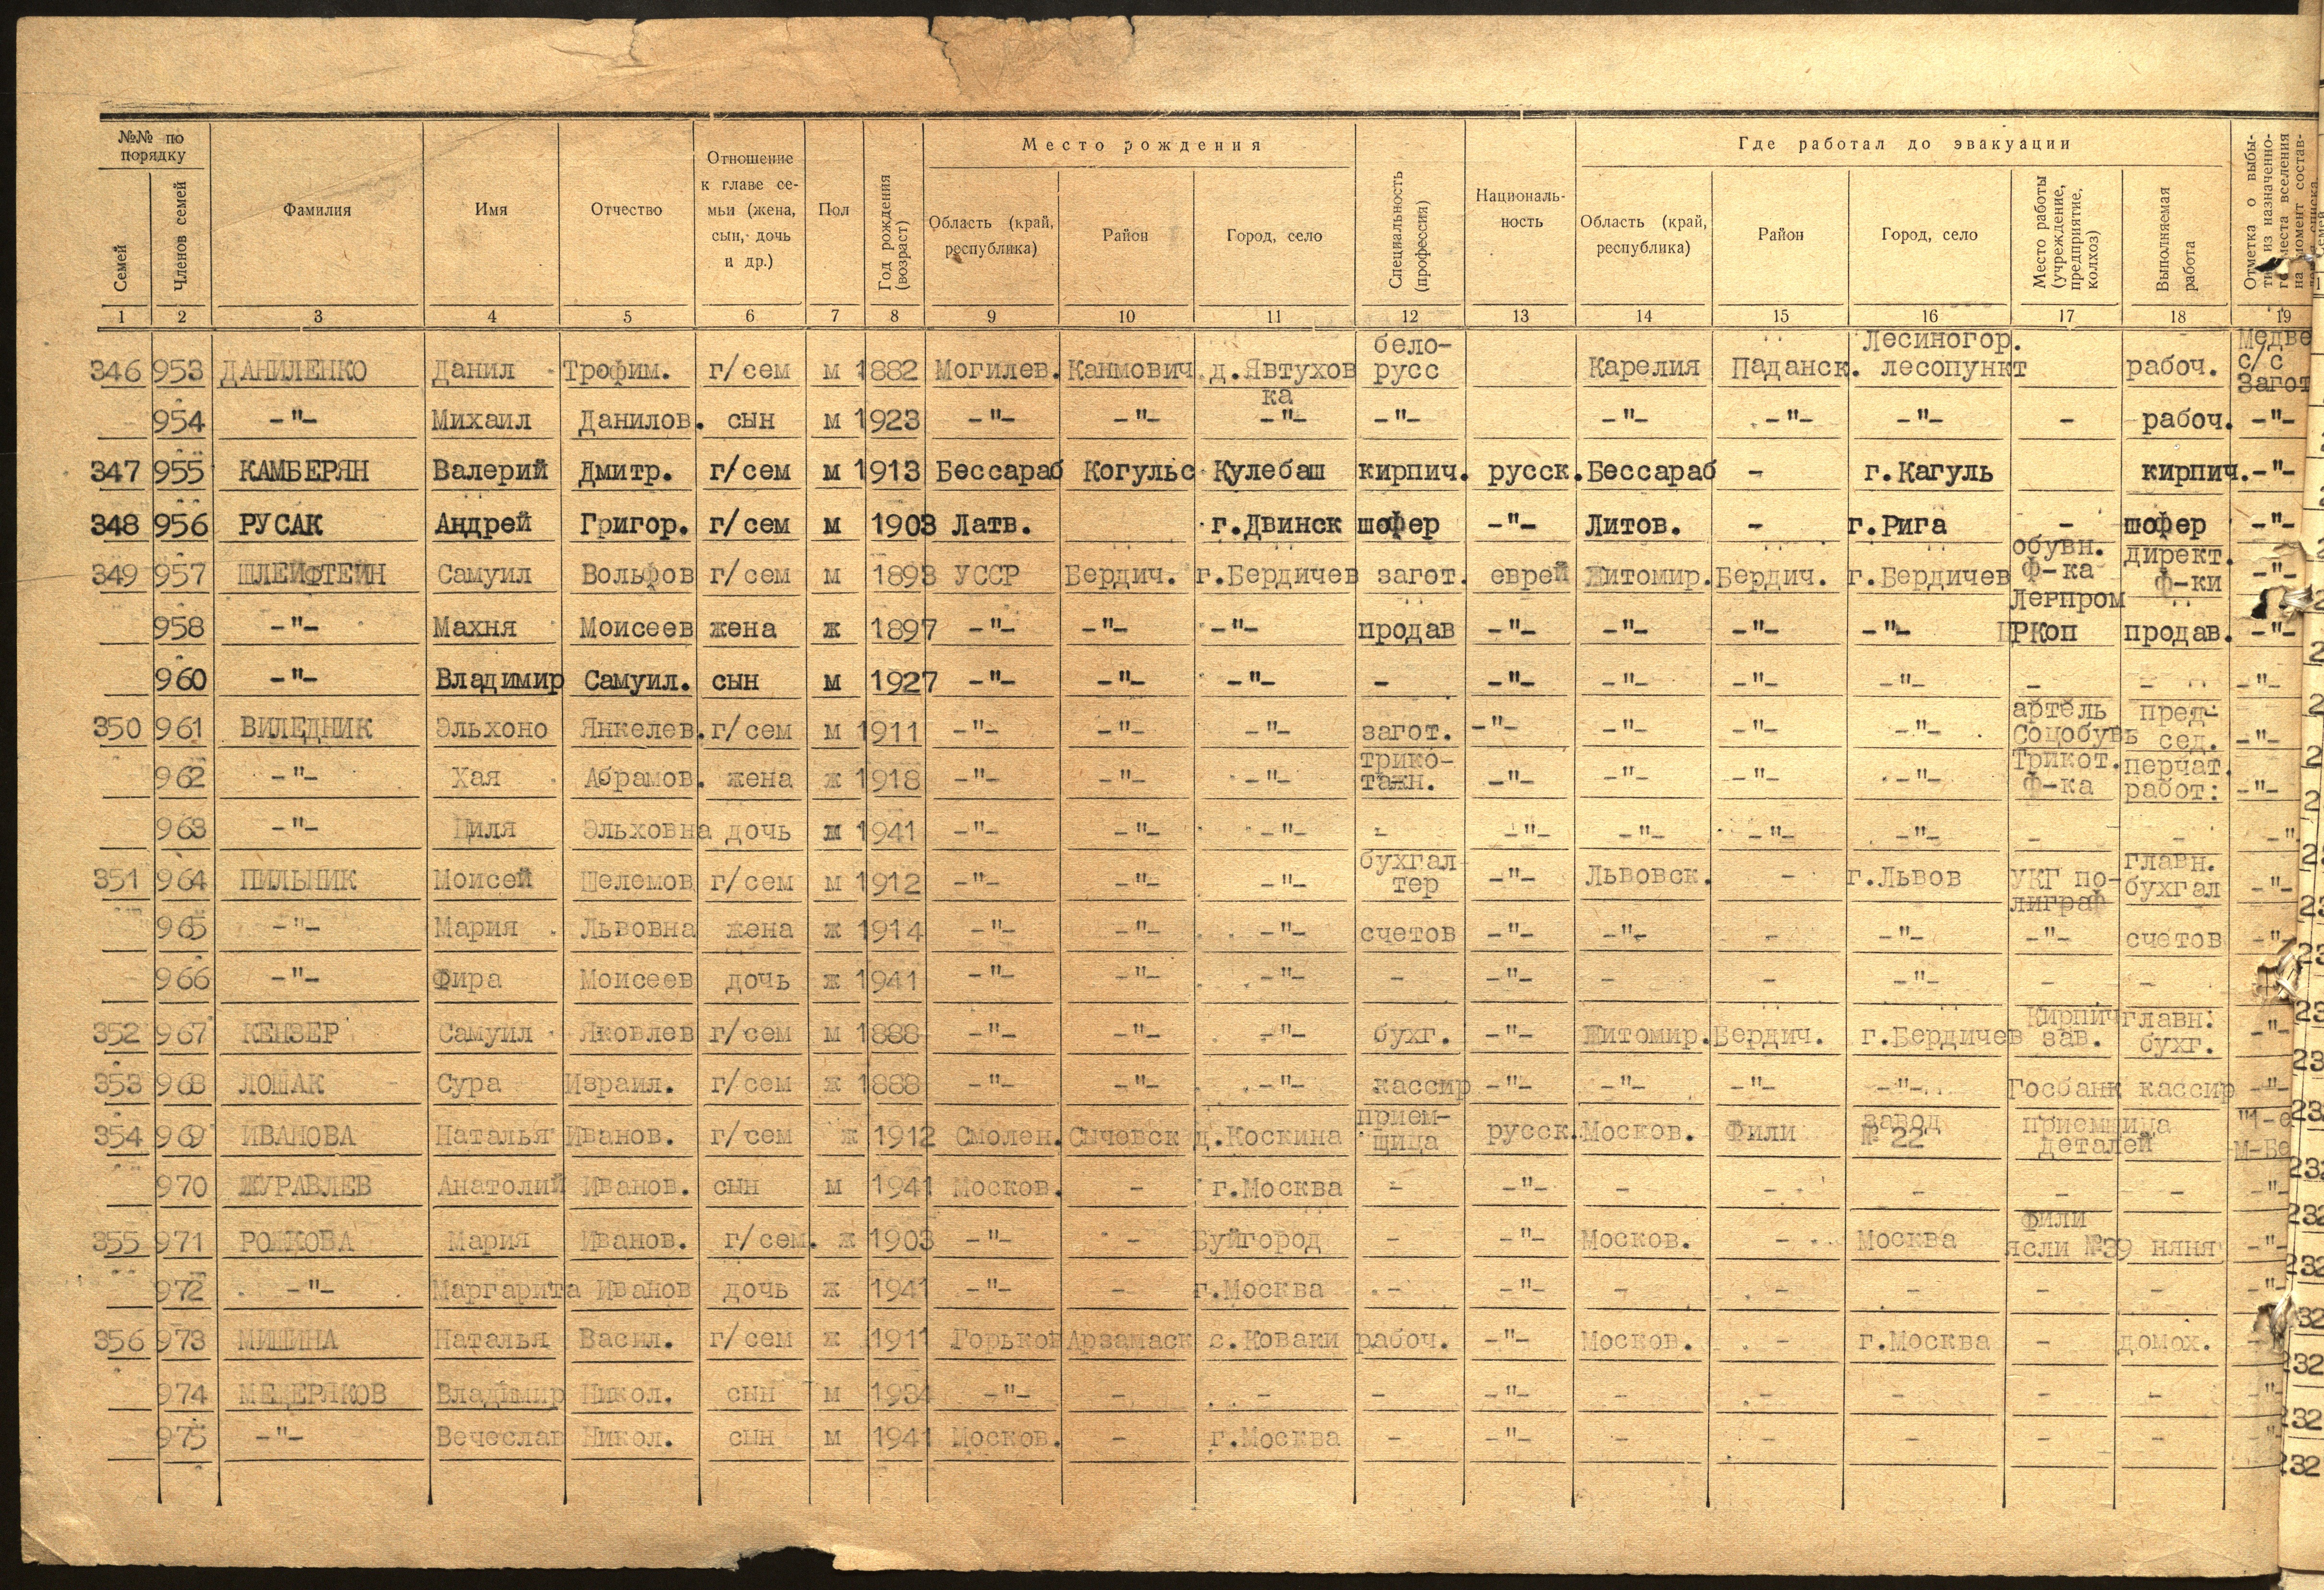 №№ по порядку
Семей
Членов семей
Фамилия
Имя
Отчество
Отношение к главе се-мьи (жена, сын, дочь и др.)
Пол
Год рождения (возраст)
Место рождения
Область (край, республика)
Район
Город, село
Специальность (профессия)
Националь-ность
Где работал до эвакуации
Область (край, республика)
Район
Город, село
Место работы (учреждение, предприятие, колхоз)
Выполняемая работа
Отметка о выбы-
1 2 3 4 5 6 7 8 9 10 11 12 13 14 15 16 17 18 19
346 953 ДАНИЛЕНКО Данил Трофим. г/сем м 1882 Могилев. Канмович д.Явтухов ка бело-русс Карелия Паданск. Лесиногор. лесопункт рабоч. Медве с/с Загот
954 -"- Михаил Данилов. сын м 1923 -"- -"- -"- -"- -"- -"- -"- - рабоч. -"-
347 955 КАМБЕРЯН Валерий Дмитр. г/сем м 1913 Бессараб Когульс Кулебаш кирпич. русск. Бессараб - г.Кагуль кирпич. -"-
348 956 РУСАК Андрей Григор. г/сем м 1903 Латв. г.Двинск шофер -"- Литов. - г.Рига - шофер -"-
349 957 ШЛЕЙФТЕЙН Самуил Вольфов г/сем м 1893 УССР Бердич. г.Бердичев загот. еврей Житомир. Бердич. г.Бердичев обувн. ф-ка Легпром директ. ф-ки -"-
958 -"- Махня Моисеев жена ж 1897 -"- -"- -"- продав -"- -"- -"- -"- ЦРКоп продав. -"-
960 -"- Владимир Самуил. сын м 1927 -"- -"- -"- - -"- -"- -"- -"- - - -"-
350 961 ВИЛЕДНИК Эльхоно Янкелев. г/сем м 1911 -"- -"- -"- загот. -"- -"- -"- -"- артель Соцобувь пред-сед. -"-
962 -"- Хая Абрамов. жена ж 1918 -"- -"- -"- трико-тажн. -"- -"- -"- -"- Трикот. ф-ка перчат. работ: -"-
963 -"- Циля Эльховна дочь ж 1941 -"- -"- -"- - -"- -"- -"- -"- - - -"
351 964 ПИЛЬНИК Моисей Шелемов г/сем м 1912 -"- -"- -"- бухгал тер -"- Львовск. - г.Львов УКГ по-лиграф главн. бухгал -"-
965 -"- Мария Львовна жена ж 1914 -"- -"- -"- счетов -"- -"- - -"- -"- счетов -"-
966 -"- Фира Моисеев дочь ж 1941 -"- -"- -"- - -"- - - -"- - -
352 967 КЕНЗЕР Самуил Яковлев г/сем м 1888 -"- -"- -"- бухг. -"- Житомир. Бердич. г.Бердичев Кирпич зав. главн: бухг. -"-
353 968 ЛОШАК Сура Израил. г/сем ж 1888 -"- -"- -"- кассир -"- -"- -"- -"- Госбанк кассир -"-
354 969 ИВАНОВА Наталья Иванов. г/сем ж 1912 Смолен. Сычевск д.Коскина прием-щица русск. Москов. Фили завод № 22 приемщица деталей "1-е М-Бе
970 ЖУРАВЛЕВ Анатолий Иванов. сын м 1941 Москов. - г.Москва - -"- - - - - - -"-
355 971 РОЖКОВА Мария Иванов. г/сем. ж 1903 -"- - Буйгород - -"- Москов. - Москва Фили ясли №39 няня -"-
972 -"- Маргарита Иванов дочь ж 1941 -"- - г.Москва - -"- - - - - - -"-
356 973 МИШИНА Наталья Васил. г/сем ж 1911 Горьков Арзамаск с.Коваки рабоч. -"- Москов. - г.Москва - домох.
974 МЕЩЕРЯКОВ Владимир Никол. сын м 1934 -"- - - - -"- - - - - - -"-
975 -"- Вечеслав Никол. сын м 1941 Москов. - г.Москва - -"- - - - - - -"